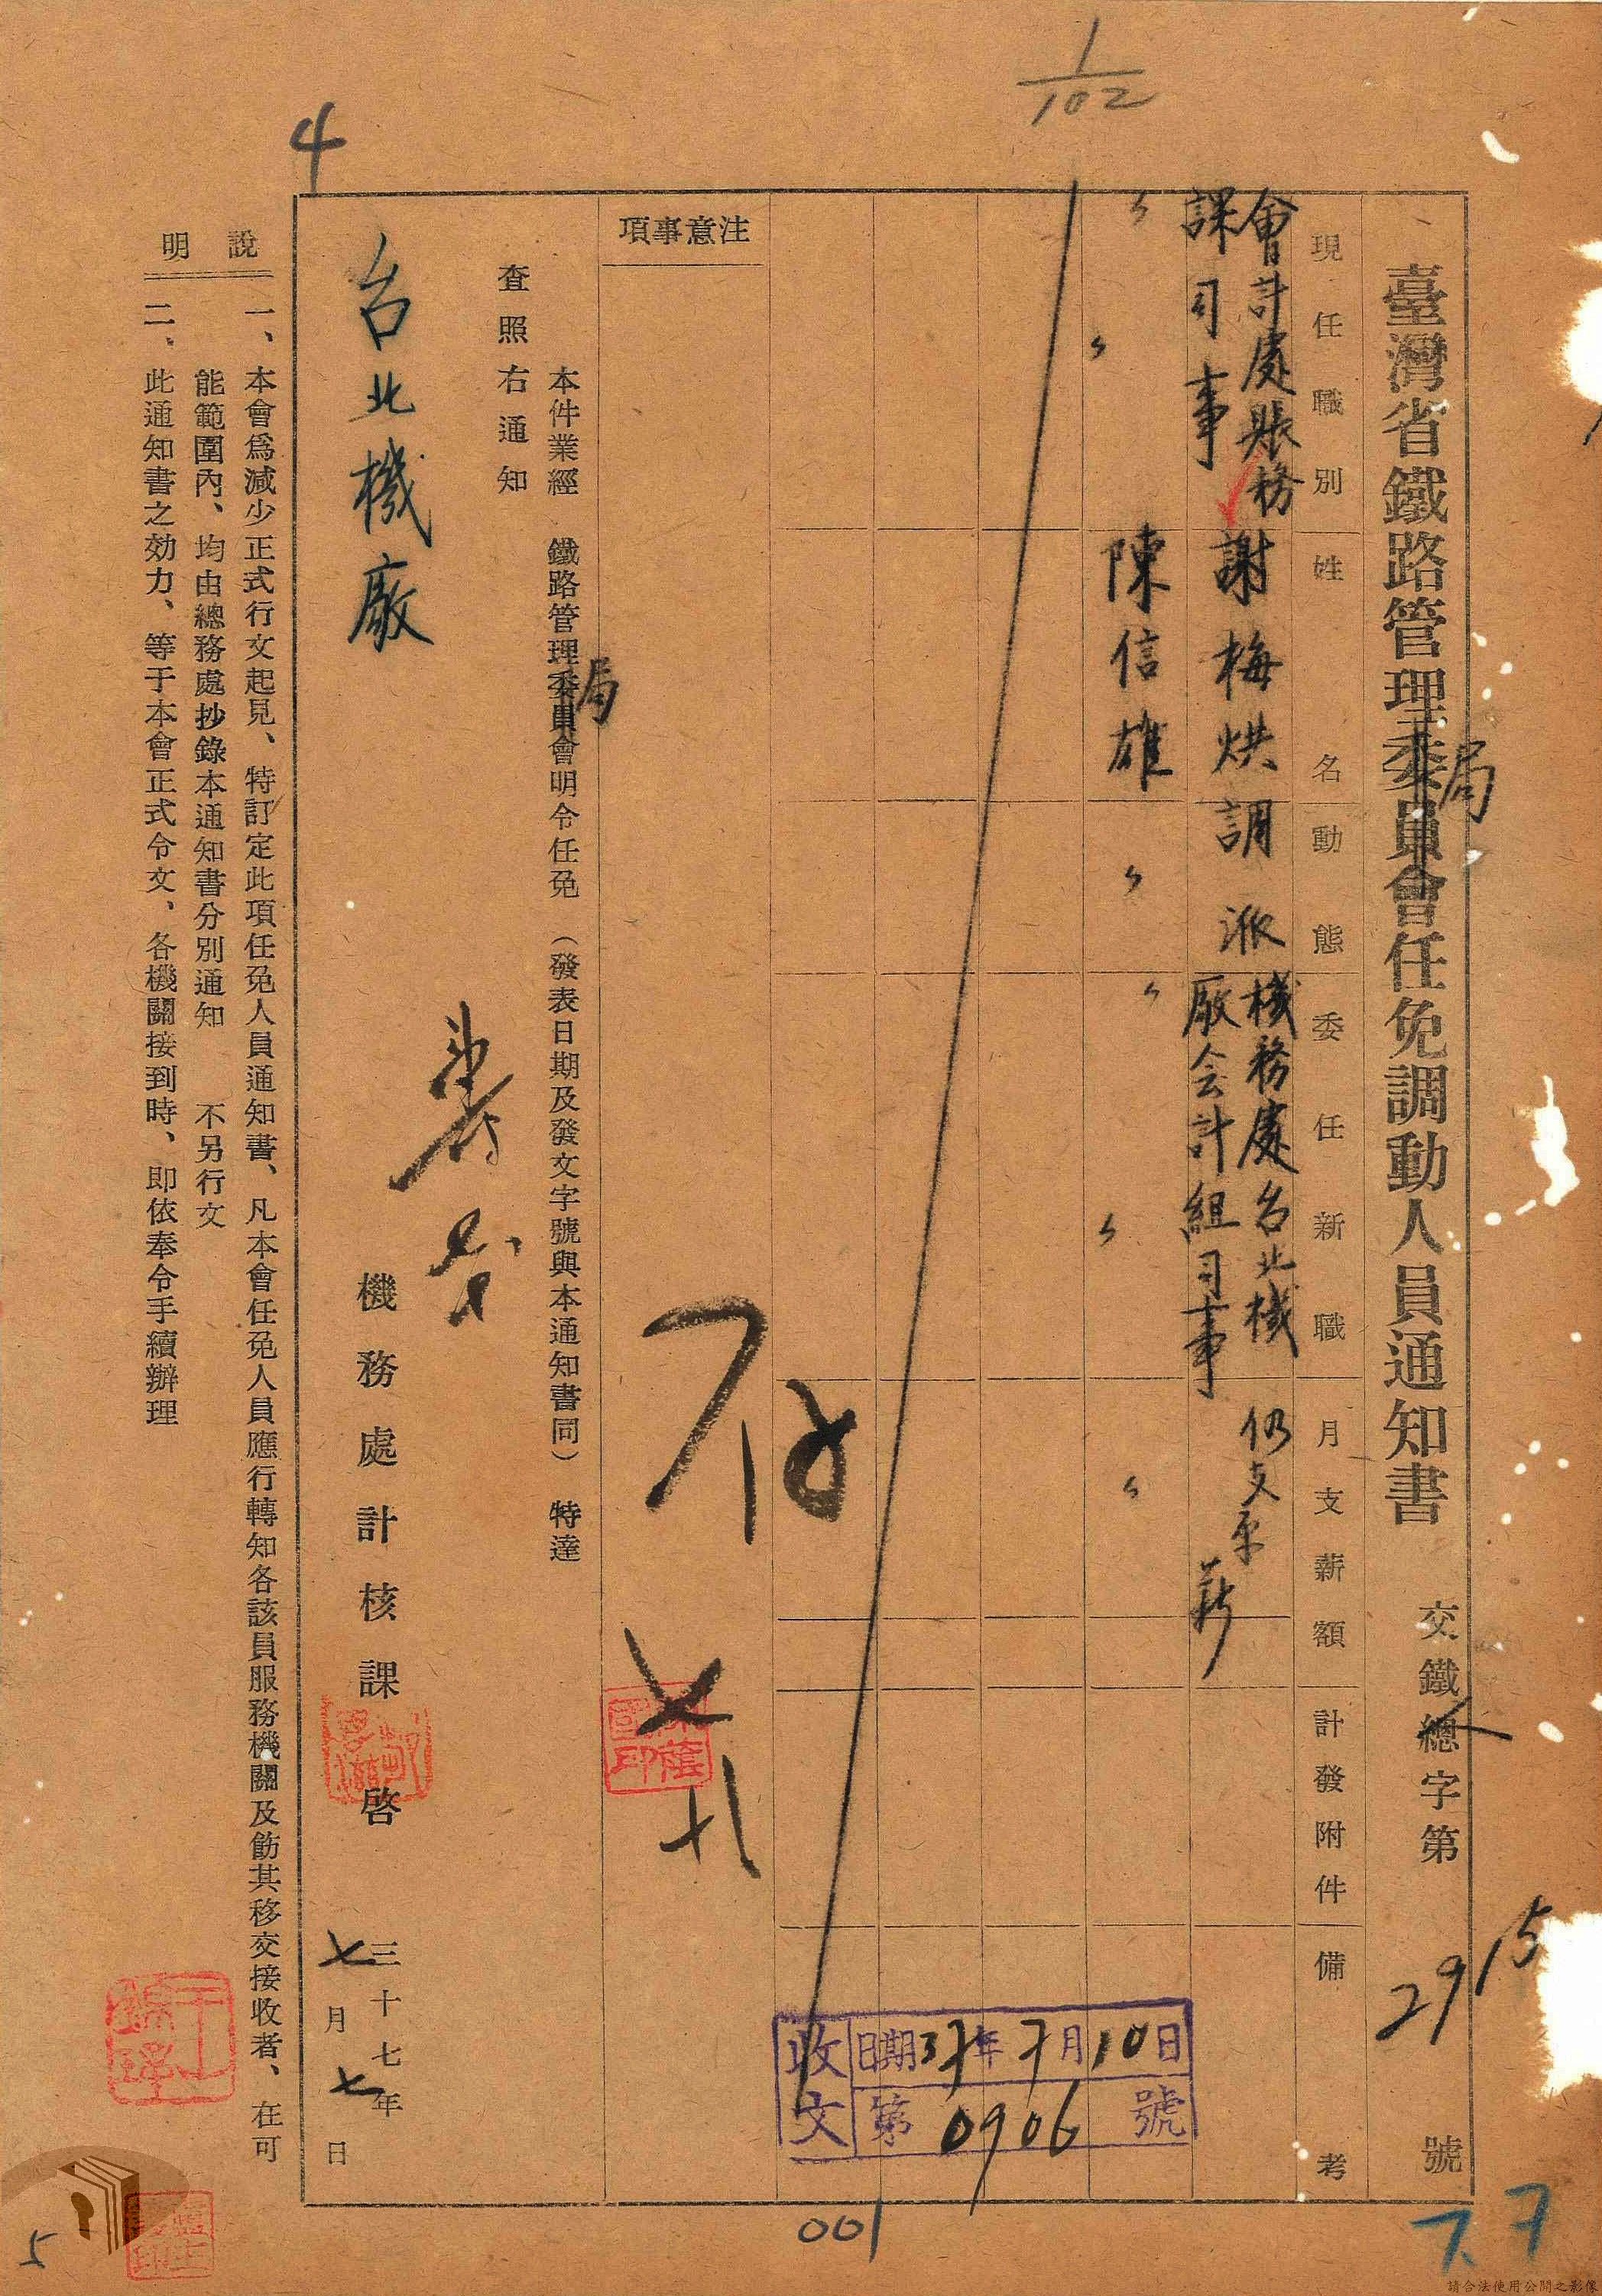 1/102
4
臺灣省鐵路管理委員會任免調動人員通知書
局
交鐵總字第 2915 號
人
現任職別
姓名
動態
委任新職
月支薪額
計發附件
備考
會計處賬務課司事
謝梅烘
調派
機務處台北機廠会計組司事
仍支原薪
〃 〃
陳信雄
〃
〃 〃
〃
注意事項
本件業經 鐵路管理委員會明令任免（發表日期及發文字號與本通知書同） 特達
局
查照右通知
台北機廠
機務處計核課 啓
三十七年
七月七日
收文
日期37年7月10日
第0906號
說明
一、本會爲減少正式行文起見、特訂定此項任免人員通知書、凡本會任免人員應行轉知各該員服務機關及飭其移交接收者、在可
能範圍內、均由總務處抄錄本通知書分別通知 不另行文
二、此通知書之効力、等于本會正式令文、各機關接到時、即依奉令手續辦理
001
7.7
5
請合法使用公開之影像